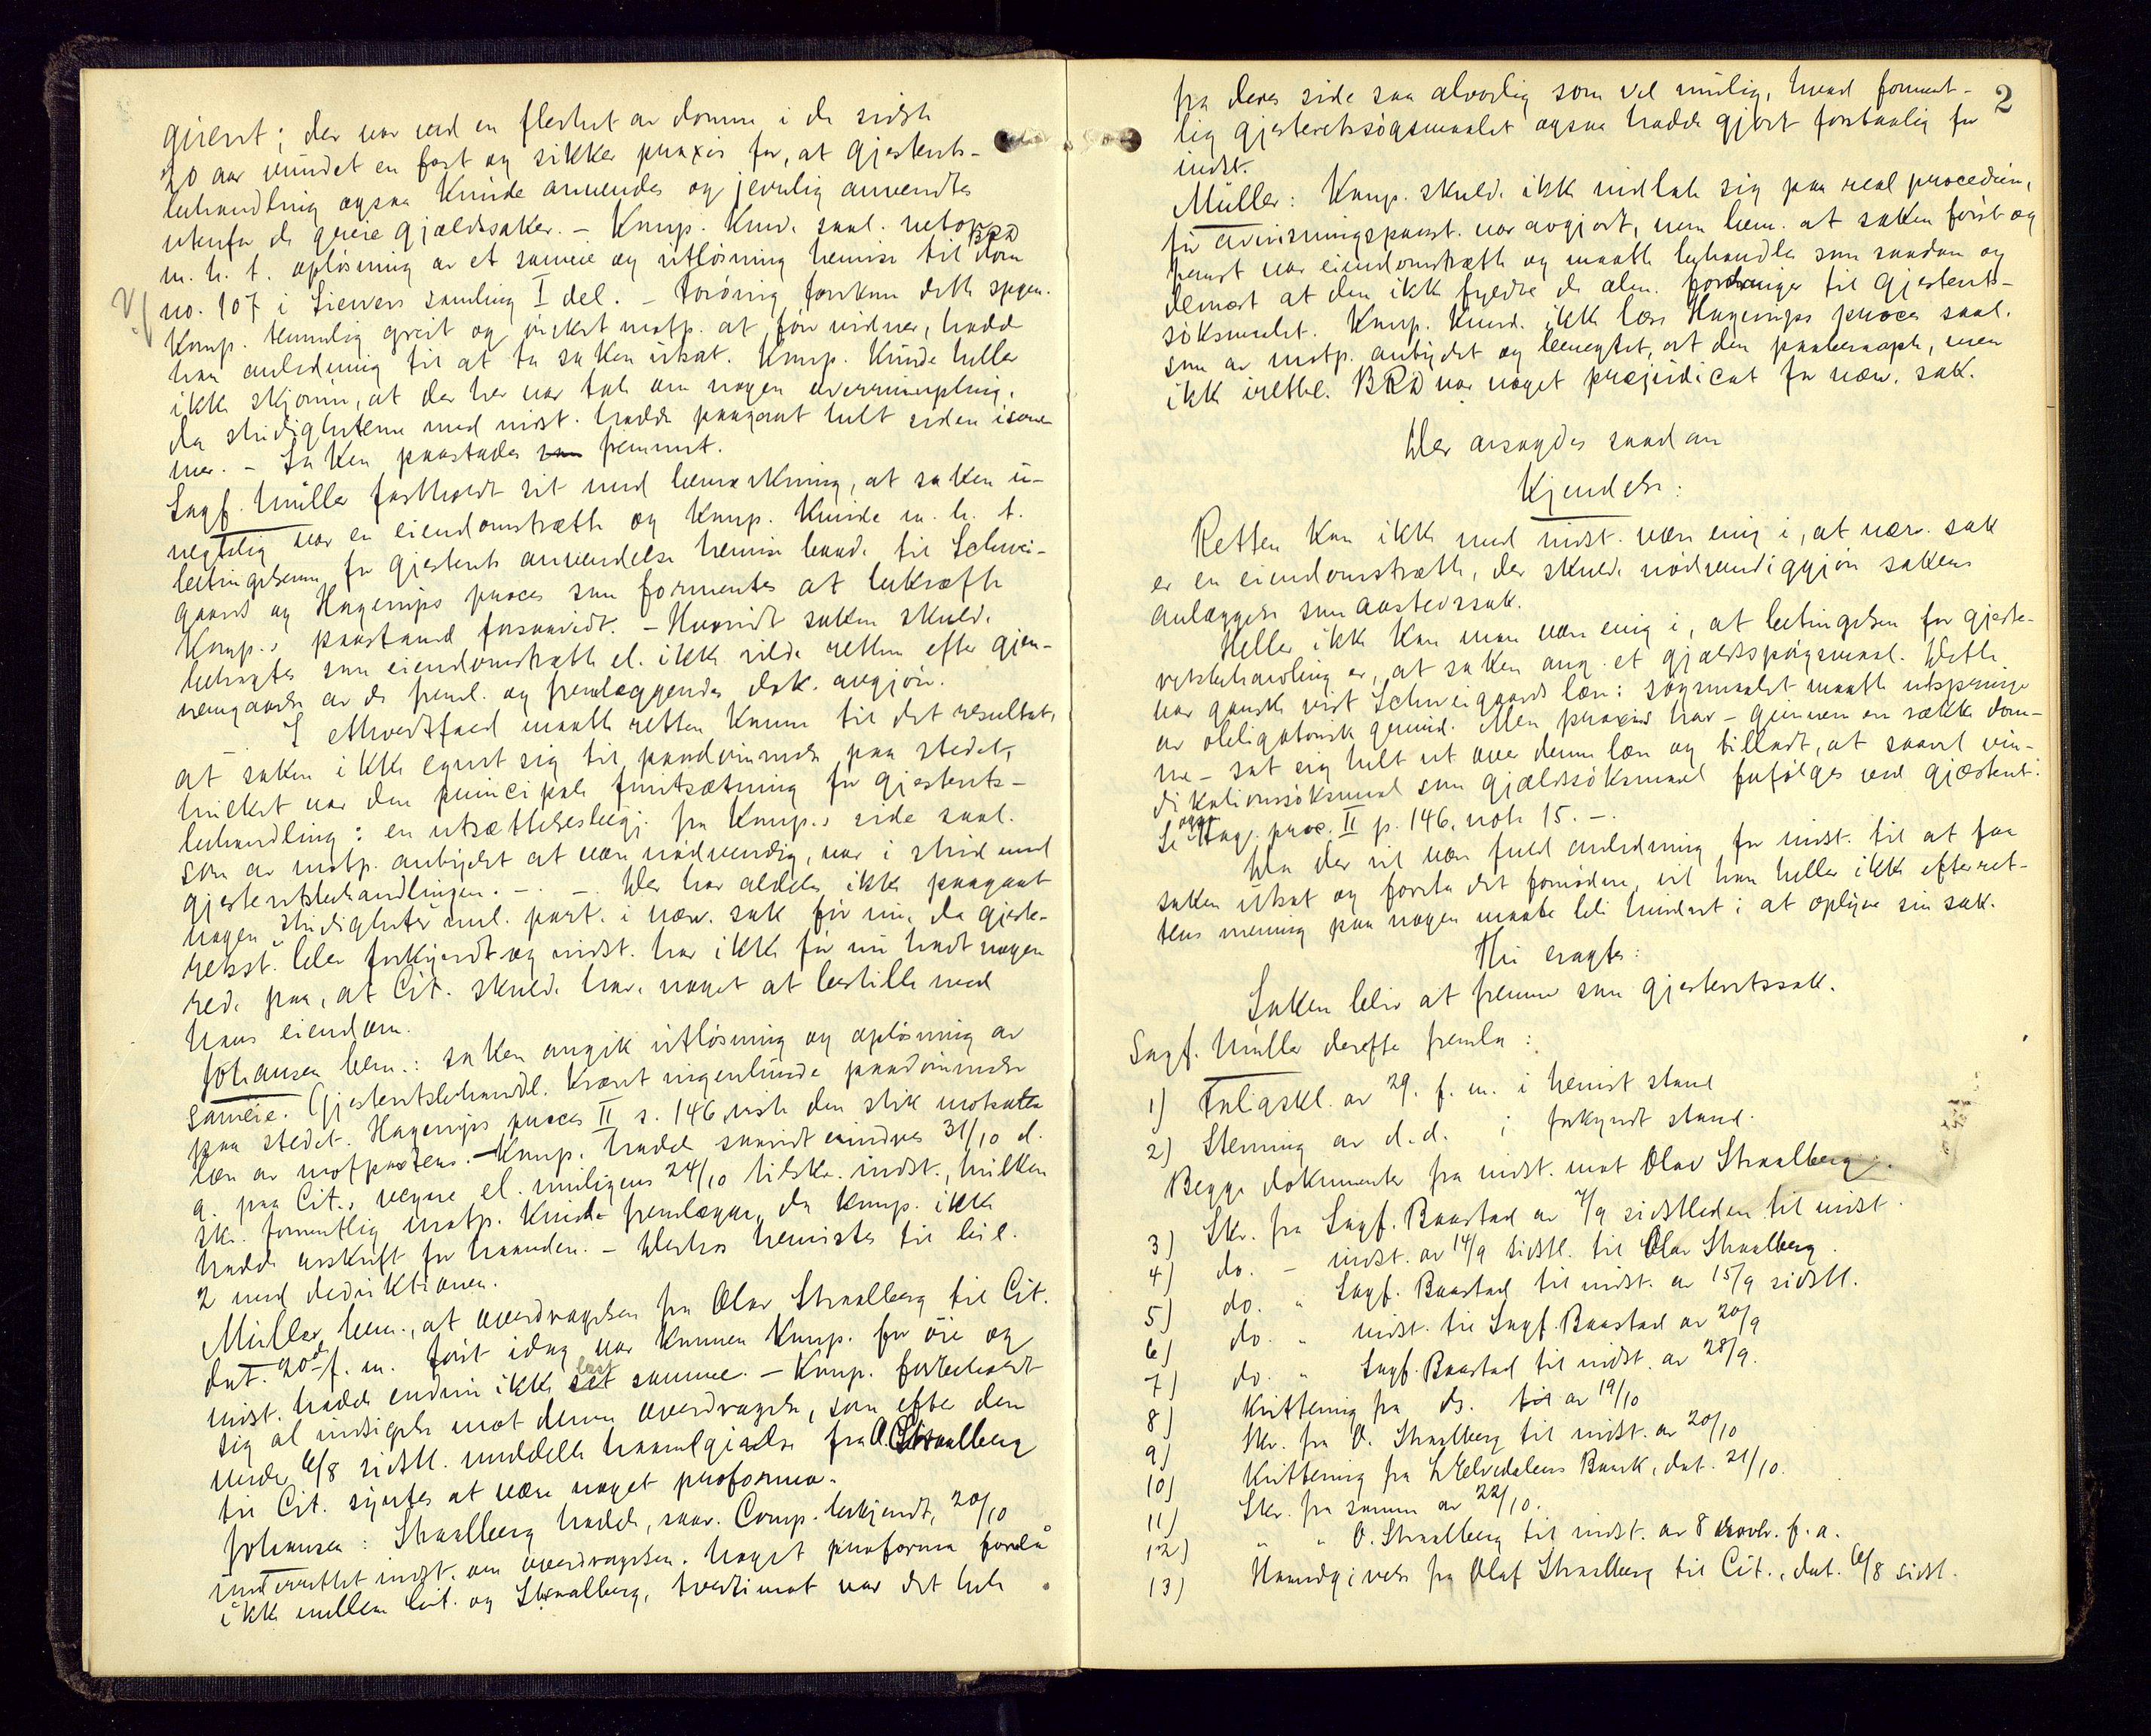 gjerert; der var ved en flerhet av domme i de sidste
20 aar vundet en fast og sikker praxis for, at gjesterets-
behandling ogsaa kunde anvendes og jevnlig anvendtes
utenfor de greie gjældssaker. - Komp. kund. saal. netop
m. h. t. opløsning av et sameie og utløsning henvise til BRD dom
no. 107 i Siewers samling I del. - Forøvrig forekom dette spgm.
Komp. temmelig greit og ønsket motp. at føre vidner, hadde
han anledning til at ta saken utsat. Komp. kunde heller
ikke skjønne, at der her var tale om nogen overrumpling,
da stridighetene med indst. hadde paagaat helt siden i som-
mer. - Saken paastodes fremmet.
Sagf. Müller fastholdt sit med bemerkning, at saken u-
negtelig var en eiendomstrætte og Komp. kunde m. h. t.
betingelserne for gjesterets anvendelse henvise baade til Schwei-
gaard og Hagerups proces som formentes at bekræfte
Komp.s paastand forsaavidt. - Hvorvidt saken skulde
betragtes som eiendomstrætte el. ikke vilde retten efter gjen-
nemgaaelse av de freml. og fremlæggendes dok. avgjøre.
I ethvertfald maatte retten komme til det resultat,
at saken ikke egnet sig til paadømmelse paa stedet,
hvilket var den principale forutsætning for gjesterets-
behandling: en utsættelsesbegj. fra Komp.s side saal.
som av motp. antydet at være nødvendig, var i strid med
gjesteretsbehandlingen. - . - . Der har aldeles ikke paagaat
nogen stridigheter ml. part. i nærv. sak før nu, da gjeste-
retsst. blev forkyndt og indst. har ikke før nu hadt nogen
rede paa, at Cit. skulde have noget at bestille med
hans eiendom.
Johansen bem.: saken angik utløsning og opløsning av
sameie. Gjesteretsbehandl. krævet ingenlunde paadømmelse
paa stedet. Hagerups proces II s. 146, viste den stik motsatte
lære av motpartens. - Komp. hadde saavidt erindres 31/10 d.
a. paa Cit.s vegne el. muligens 24/10 tilskr. indst., hvilken
skr. formentlig motp. kunde fremlægge, da Komp. ikke
hadde avskrift for haanden. - Derhos henvistes til bil.
2 med deduktionen.
Müller bem., at overdragelsen fra Olav Straalberg til Cit.
dat. 20de f. m. først idag var kommen Komp. for øie og
indst. hadde endnu ikke læst set samme. - Komp. forbeholdt
sig al indsigelse mot denne overdragelse, som efter den
under 6/8 sidstl. meddelte haandgivelse fra O. Straalberg
til Cit. syntes at være noget proforma.
Johansen: Straalberg hadde, saav. Comp. bekjendt, 20/10
underrettet indst. om overdragelsen. Noget proforma forelå
ikke mellem Cit. og Straalberg, tvertimot var det hele
2
fra deres side saa alvorlig som vel mulig, hvad forment-
lig gjesteretssøgsmaalet ogsaa hadde gjort forstaalig for
indst.
Müller: Komp. skulde ikke indlate sig paa realproceduren,
før avvisningspaast. var avgjort, men bem. at saken først og
fremst var eiendomstrætte og maatte behandles som saadan og
dernæst at den ikke fyldte de alm. fordringer til gjesterets-
søksmaalet. Komp. kund. ikke læse Hagerups proces saal.
som av motp. antydet og benegtet, at den paaberaapte, men
ikke irettel. BRD var noget præjudicat for nærv. sak.
Der avsagdes saadan
Kjendelse:
Retten kan ikke med indst. være enig i, at nærv. sak
er en eiendomstrætte, der skulde nødvendiggjøre sakens
anlæggelse som aastedssak.
Heller ikke kan man være enig i, at betingelsen for gjeste-
retsbehandling er, at saken ang. et gjældsspøgsmaal. Dette
var ganske vist Schweigaards lære: søgsmaalet maatte utspringe
av obligatorisk grund. Men praxis har - gjennem en række dom-
me - sat sig helt ut over denne lære og tilladt, at saavel vin-
dikationssøksmaal som gjældssøksmaal forfølges ved gjesteret.
Se ogsaa Hag. proc. II p. 146, note 15. -.
Da der vil være fuld anledning for indst. til at faa
saken utsat og foreta det fornødne, vil han heller ikke efter ret-
tens mening paa nogen maate bli hindret i at oplyse sin sak.
Thi eragtes:
Saken blir at fremme som gjesteretssak.
Sagf. Müller derefter fremla:
1) Forligskl. av 29. f. m. i henvist stand
2) Stevning av d. d. i forkyndt stand.
Begge dokumenter fra indst. mot Olav Straalberg.
3) Skr. fra Sagf. Baastad av 7/9 sidstleden til indst.
4) do. - indst. av 14/9 sidstl. til Olav Straalberg.
5) do. " Sagf. Baastad til indst. av 15/9 sidstl.
6) do. " indst. til Sagf. Baastad av 20/9
7) do. " Sagf. Baastad til indst. av 28/9.
8) Kvittering fra ds. til av 19/10
9) Skr. fra O. Straalberg til indst. av 20/10
10) Kvittering fra L. Elvedalens Bank, dat. 21/10.
11) Skr. fra samme av 22/10.
12) " " O. Straalberg til indst. av 8 novbr. f. a.
13) Haandgivelse fra Olaf Straalberg til Cit., dat. 6/8 sidstl.